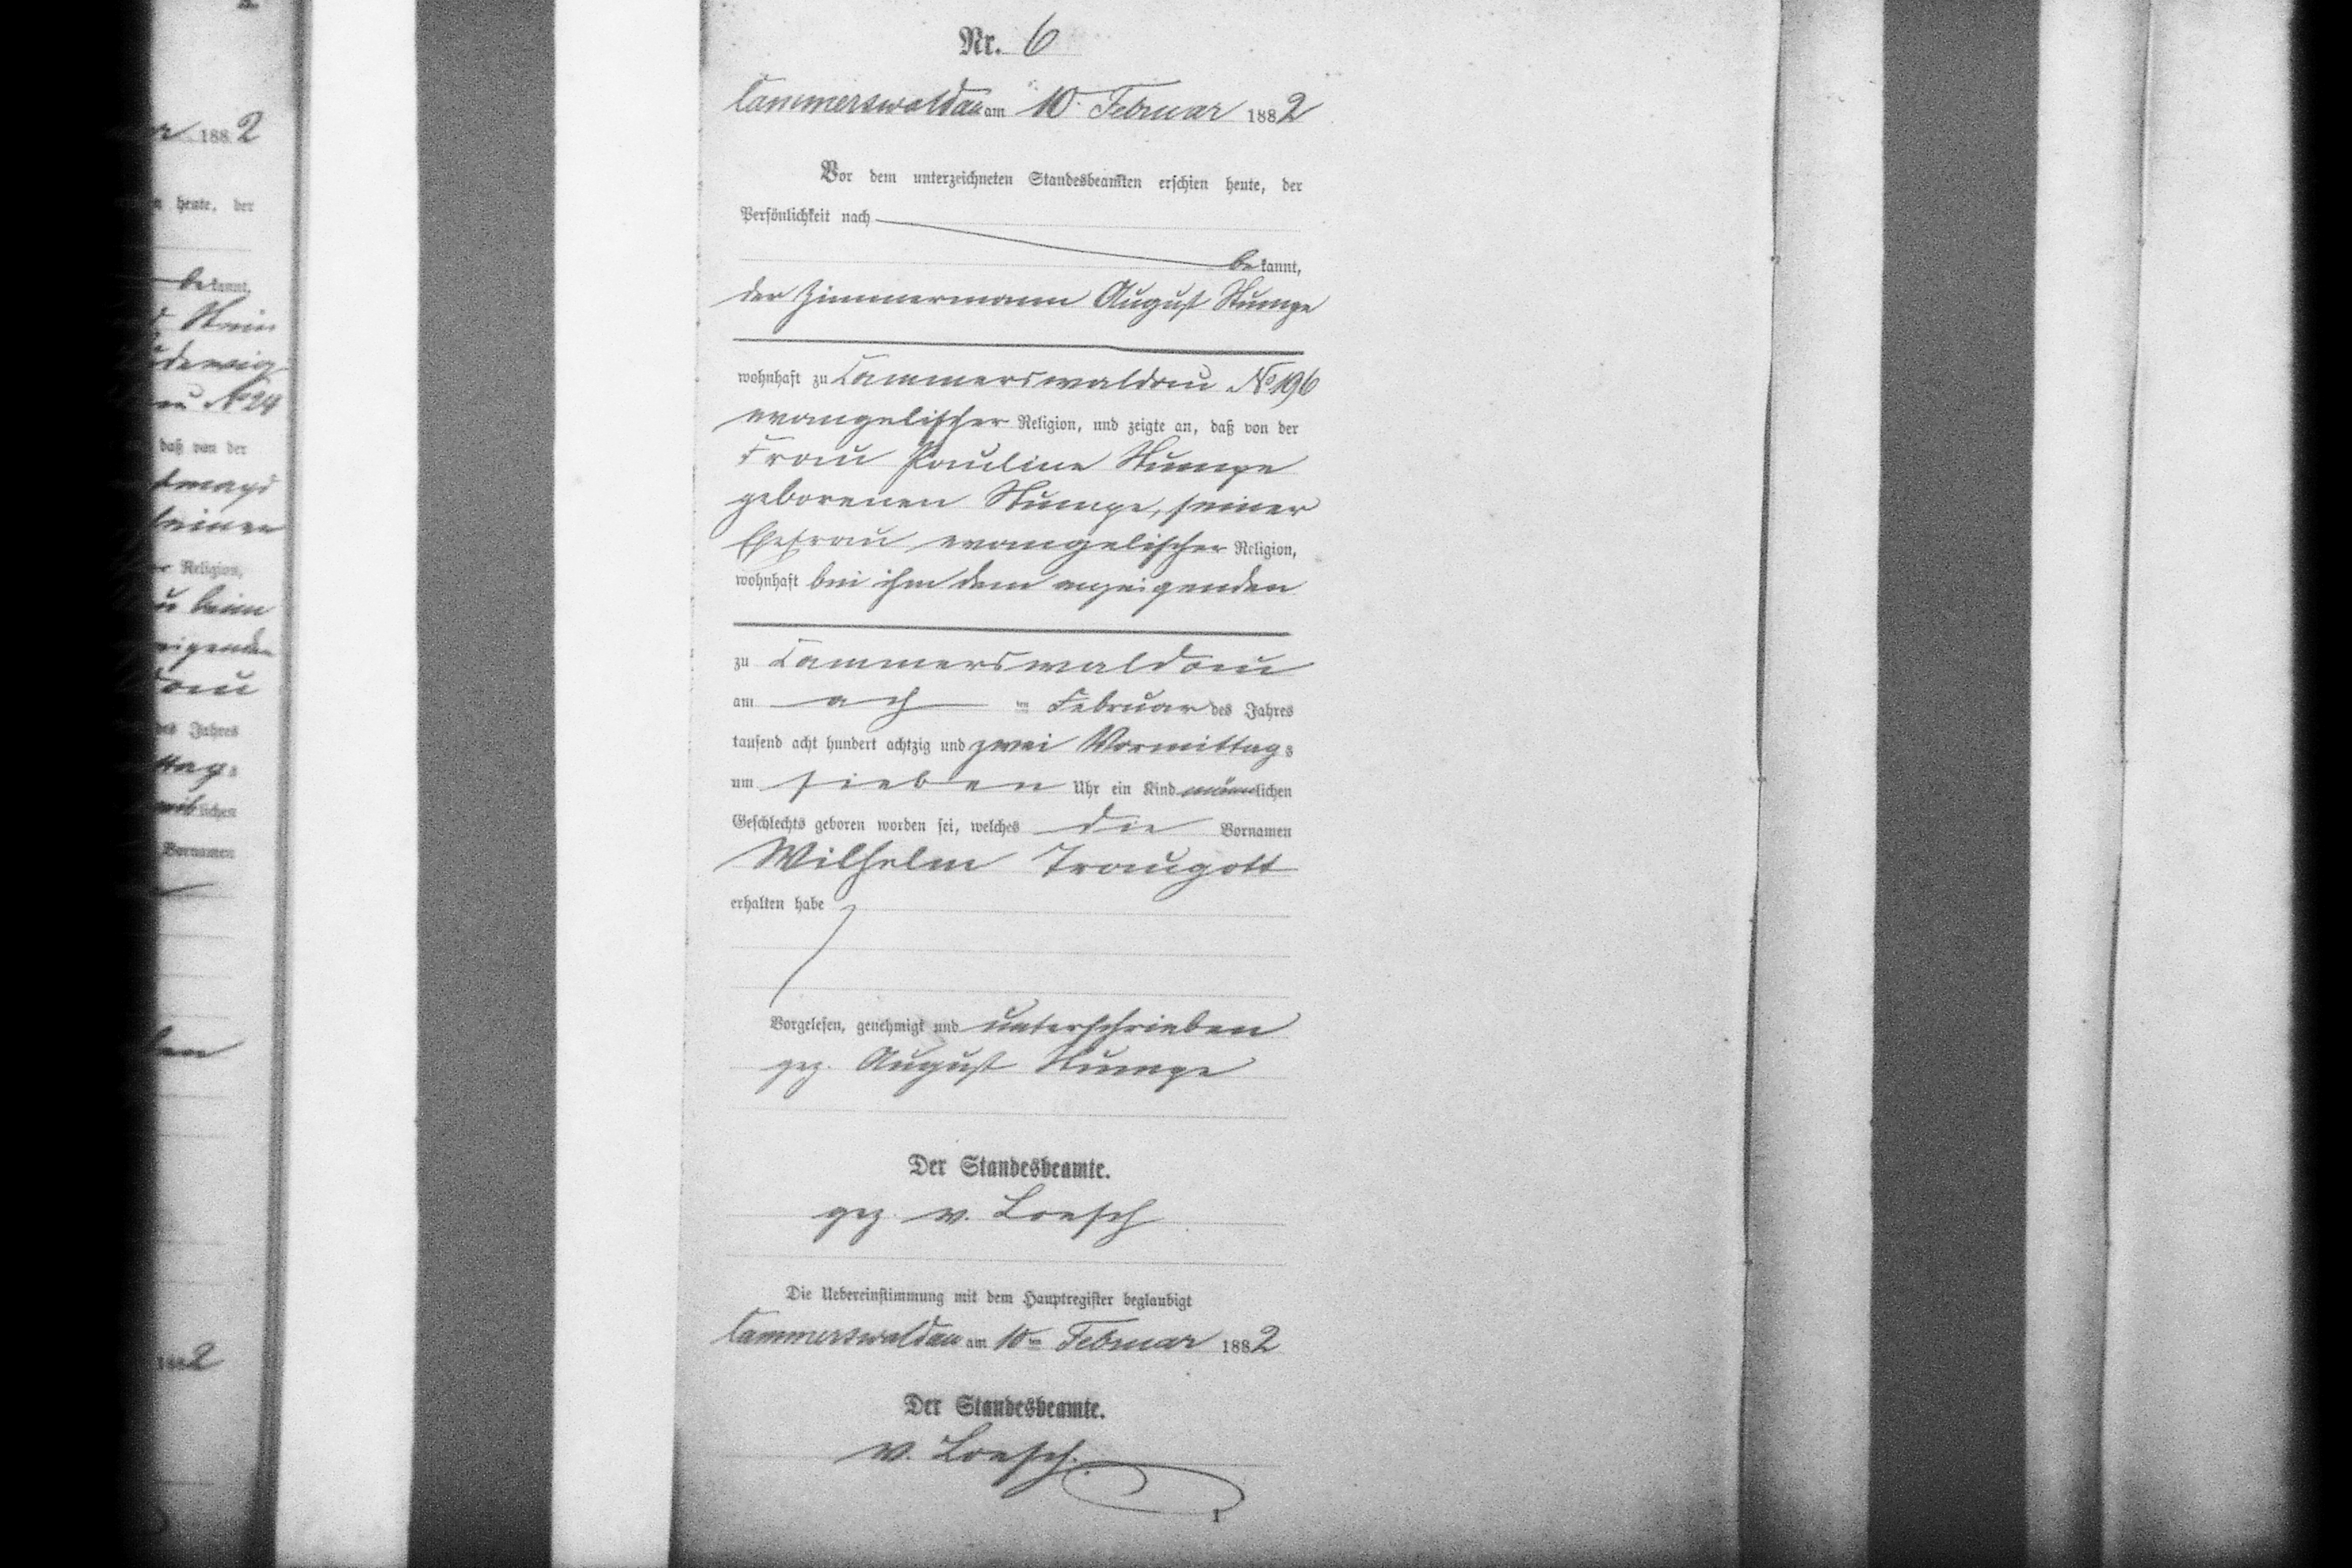 Nr. 6
Cammerswaldau am 10. Februar 1882
Vor dem unterzeichneten Standesbeamten erschien heute, der
Persönlichkeit nach
bekannt,
der Zimmermann August Stumpe
wohnhaft zu Cammerswaldau No 196
evangelischer Religion, und zeigte an, daß von der
Frau Pauline Stumpe
geborenen Stumpe, seiner
Ehefrau evangelischer Religion,
wohnhaft bei ihm dem anzeigenden
zu Cammerswaldau
am ach ten Februar des Jahres
tausend acht hundert achtzig und zwei Vormittags
um sieben Uhr ein Kind männlichen
Geschlechts geboren worden sei, welches die Vornamen
Wilhelm Traugott
erhalten habe
Vorgelesen, genehmigt und unterschrieben
gez. August Stumpe
Der Standesbeamte.
gez v. Loesch
Die Uebereinstimmung mit dem Hauptregister beglaubigt
Cammerswaldau am 10ten Februar 1882
Der Standesbeamte.
v. Loesch.
1
188 2
heute, der
bekannt,
No 24
daß von der
Religion,
des Jahres
lichen
Vornamen